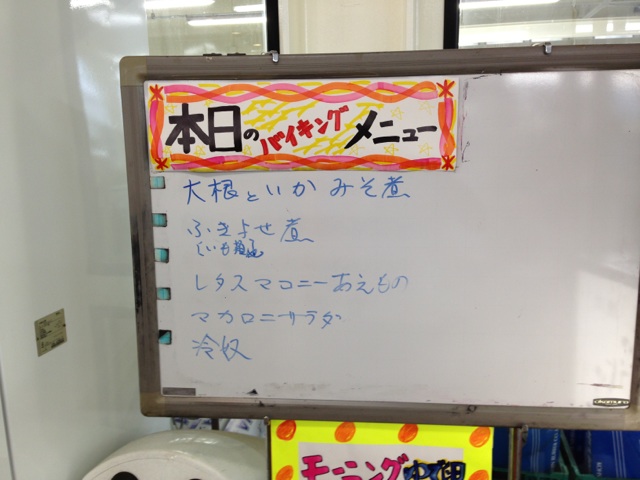 本日のバイキングメニュー
大根といか みそ煮
ふきよせ煮
レタスマコニーあえもの
マカロニサラダ
冷奴
モーニング